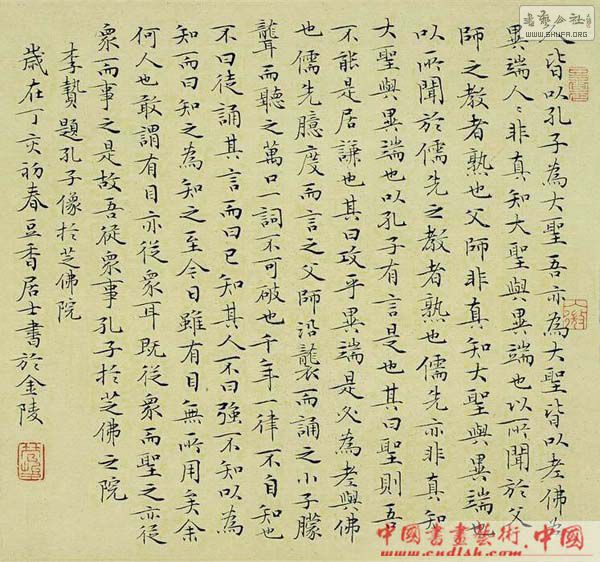 人皆以孔子為大聖吾亦為大聖皆以老佛為
異端人〻非真知大聖與異端也以所聞於父
師之教者熟也父師非真知大聖與異端也
以所聞於儒先之教者熟也儒先亦非真知
大聖與異端也以孔子有言是也其曰聖則吾
不能是居謙也其曰攻乎異端是必為老與佛
也儒先臆度而言之父師沿襲而誦之小子朦
聾而聽之萬口一詞不可破也千年一律不自知也
不曰徒誦其言而曰已知其人不曰強不知以為
知而曰知之為知之至今日雖有目無所用矣余
何人也敢謂有目亦從衆耳既從衆而聖之亦從
衆而事之是故吾從衆事孔子於芝佛之院
李贄題孔子像於芝佛院
歲在丁亥初春豆香居士書於金陵
書藝公社
WWW.SHUFA.ORG
中國書畫藝術.中國
www.cndlsh.com